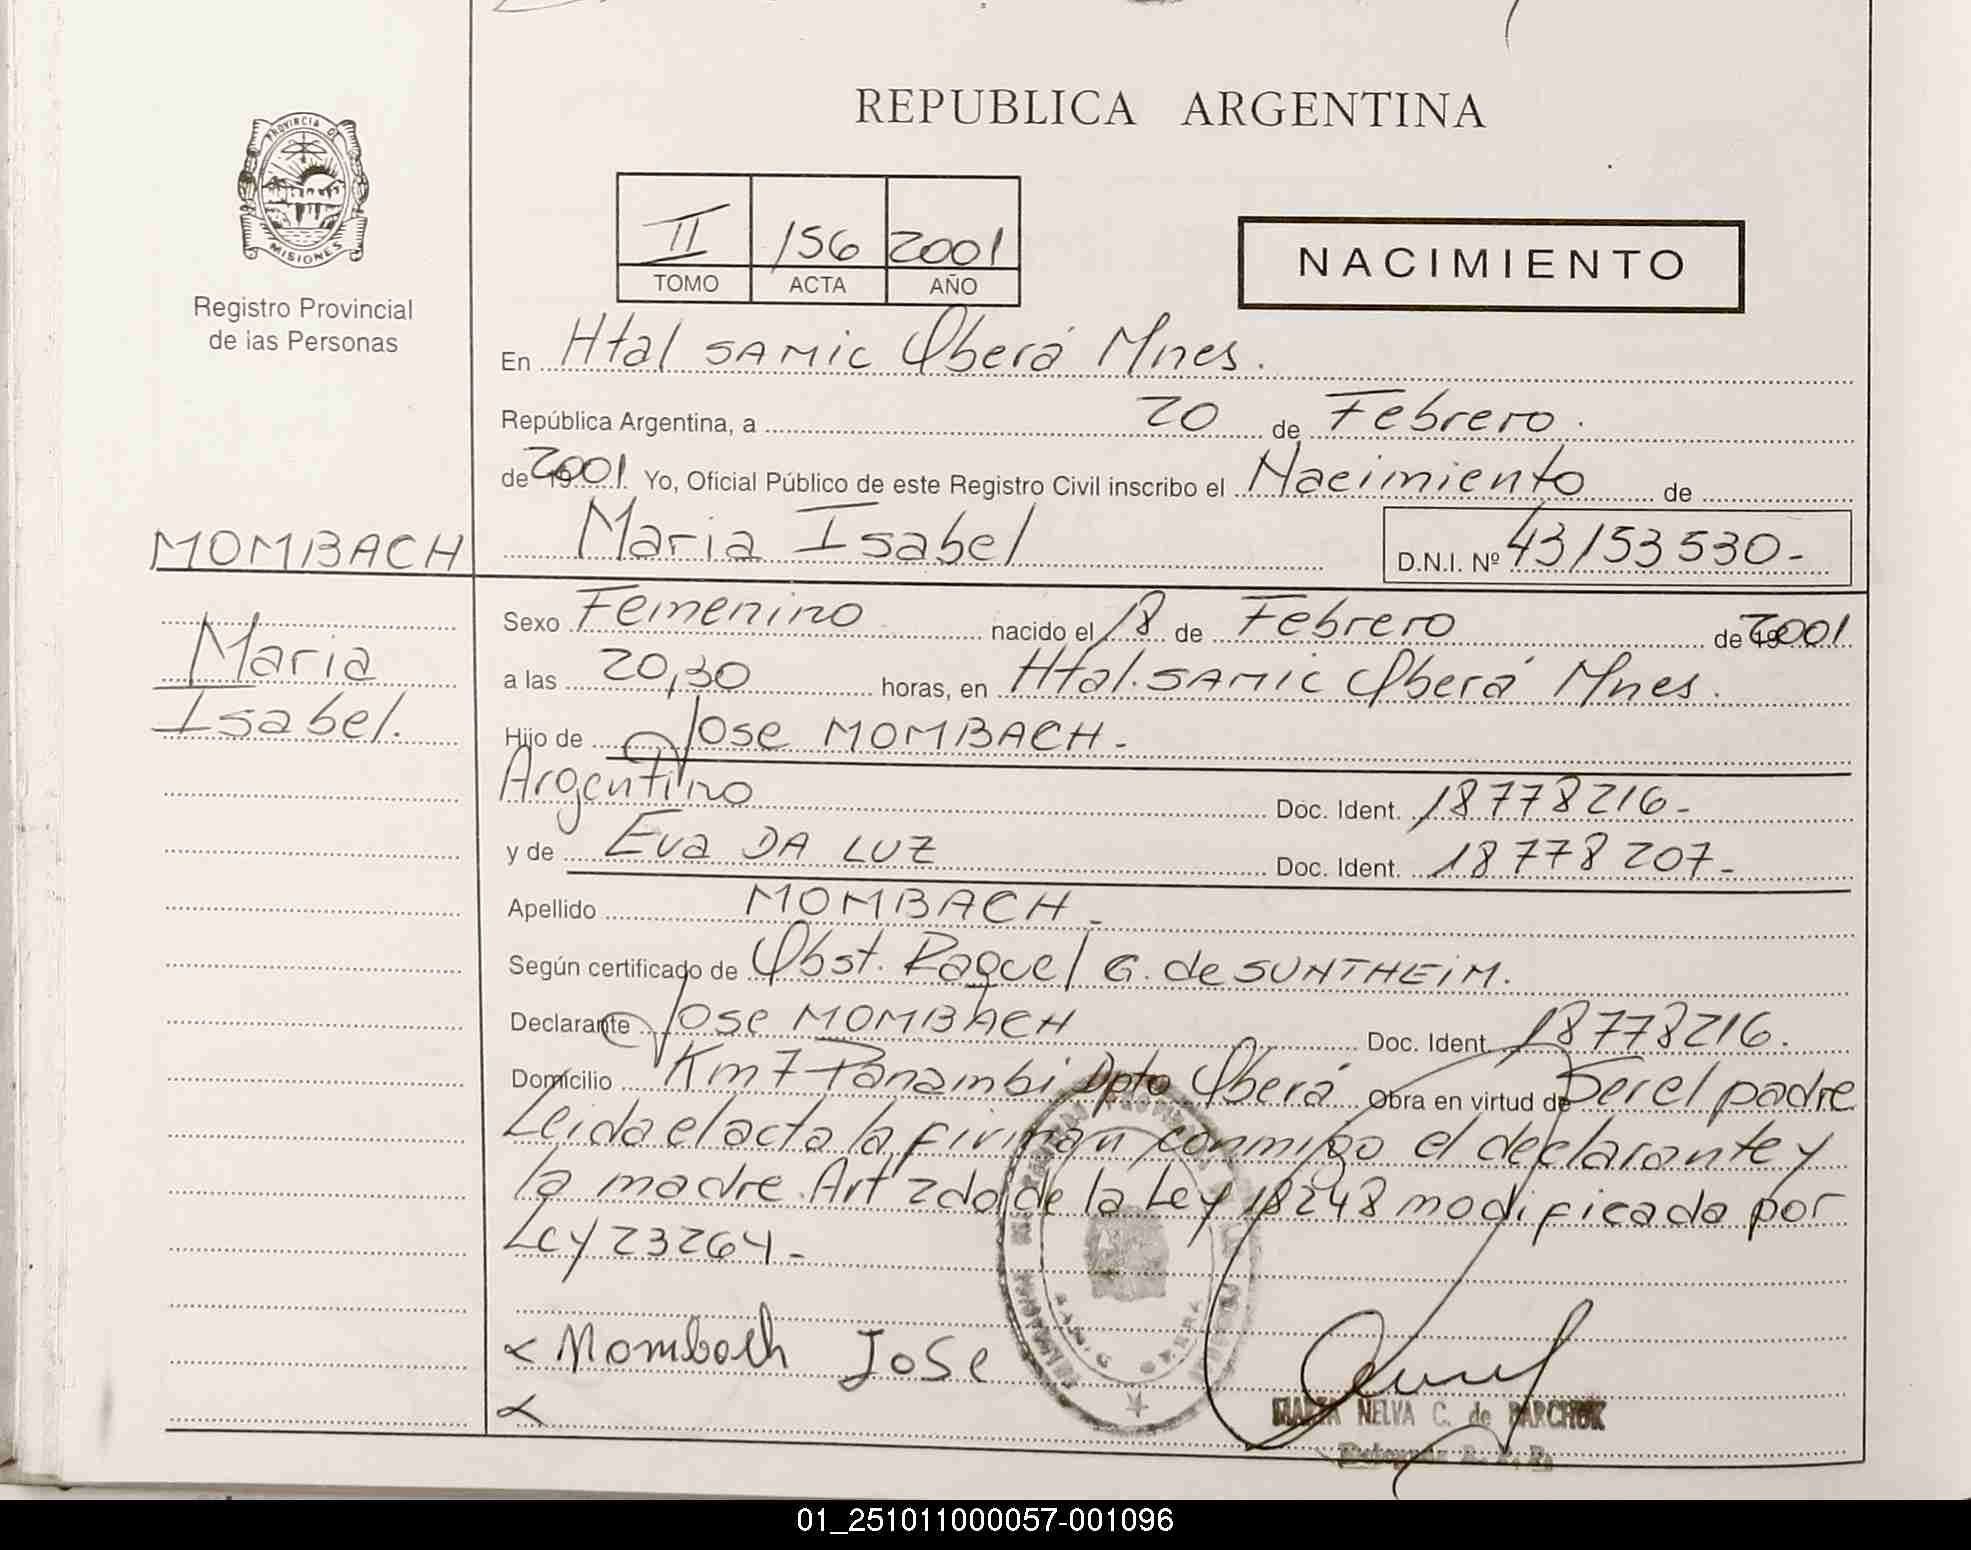 REPUBLICA ARGENTINA
PROVINCIA DE
MISIONES
Registro Provincial
de las Personas
II 156 2001
TOMO ACTA AÑO
NACIMIENTO
En Htal SAMIC Oberá Mnes.
República Argentina, a 20 de Febrero.
de 2001 Yo, Oficial Público de este Registro Civil inscribo el Nacimiento de
MOMBACH
Maria Isabel
D.N.I. Nº 43153530-
Maria
Isabel.
Sexo Femenino nacido el 18 de Febrero de 2001
a las 20,30 horas, en Htal. SAMIC Oberá Mnes.
Hijo de Jose MOMBACH-
Argentino Doc. Ident. 18778216-
y de Eva DA LUZ Doc. Ident. 18778207-
Apellido MOMBACH-
Según certificado de Obst. Raquel G. de SUNTHEIM.
Declarante Jose MOMBACH Doc. Ident. 18778216.
Domicilio Km 7 Panambi Dpto Oberá Obra en virtud de Ser el padre
Leida el acta la firman conmigo el declarante y
la madre. Art 2do de la Ley 18248 modificada por
Ley 23264-
x Mombach Jose
x
MARIA NELVA C. de PARCHUK
01_251011000057-001096